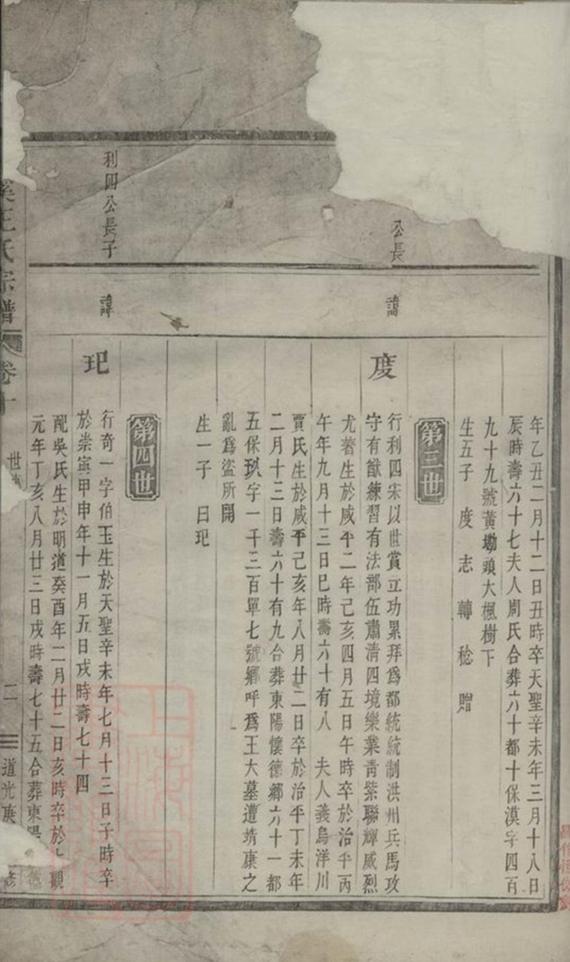 年乙丑二月十二日丑時卒天聖辛未年三月十八日
辰時壽六十七夫人周氏合葬六十都十保漠字四百
九十九號黃坳頭大楓樹下
生五子 度 志 轉 稔 贈
第三世
公長 諱
度
行利四宋以世賞立功累拜爲都統統制洪州兵馬攻
守有猷練習有法部伍肅清四境樂業靑紫聯輝威烈
尤著生於咸平二年己亥四月五日午時卒於治平丙
午年九月十三日巳時壽六十有八 夫人義烏洋川
賈氏生於咸平己亥年八月廿二日卒於治平丁未年
二月十三日壽六十有九合葬東陽懷德鄉六十一都
五保玖字一千三百單七號鄉呼爲王大墓遭靖康之
亂爲盜所開
生一子 曰玘
第四世
利四公長子 諱
玘
行奇一字伯玉生於天聖辛未年七月十三日子時卒
於崇寧甲申年十一月五日戌時壽七十四
配吳氏生於明道癸酉年二月廿二日亥時卒於大觀
元年丁亥八月廿三日戌時壽七十五合葬東陽德
溪王氏宗譜 卷十 世 二 道光庚 修